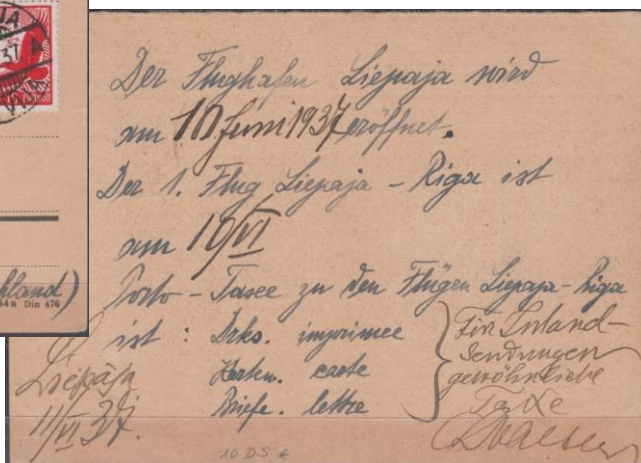 JA
37 A
hland)
Din 476
Der Flughafen Liepaja wird
am 10 Juni 1937 eröffnet.
Der 1. Flug Liepaja - Riga ist
am 10/VI
Porto - Taxee zu den Flügen Liepaja - Riga
ist : Drks. imprimee
Karten. carte
Briefe. lettre
Für Inland-
Sendungen
gewöhnliche
Taxe
Liepāja
11/VI 37.
10 DS €